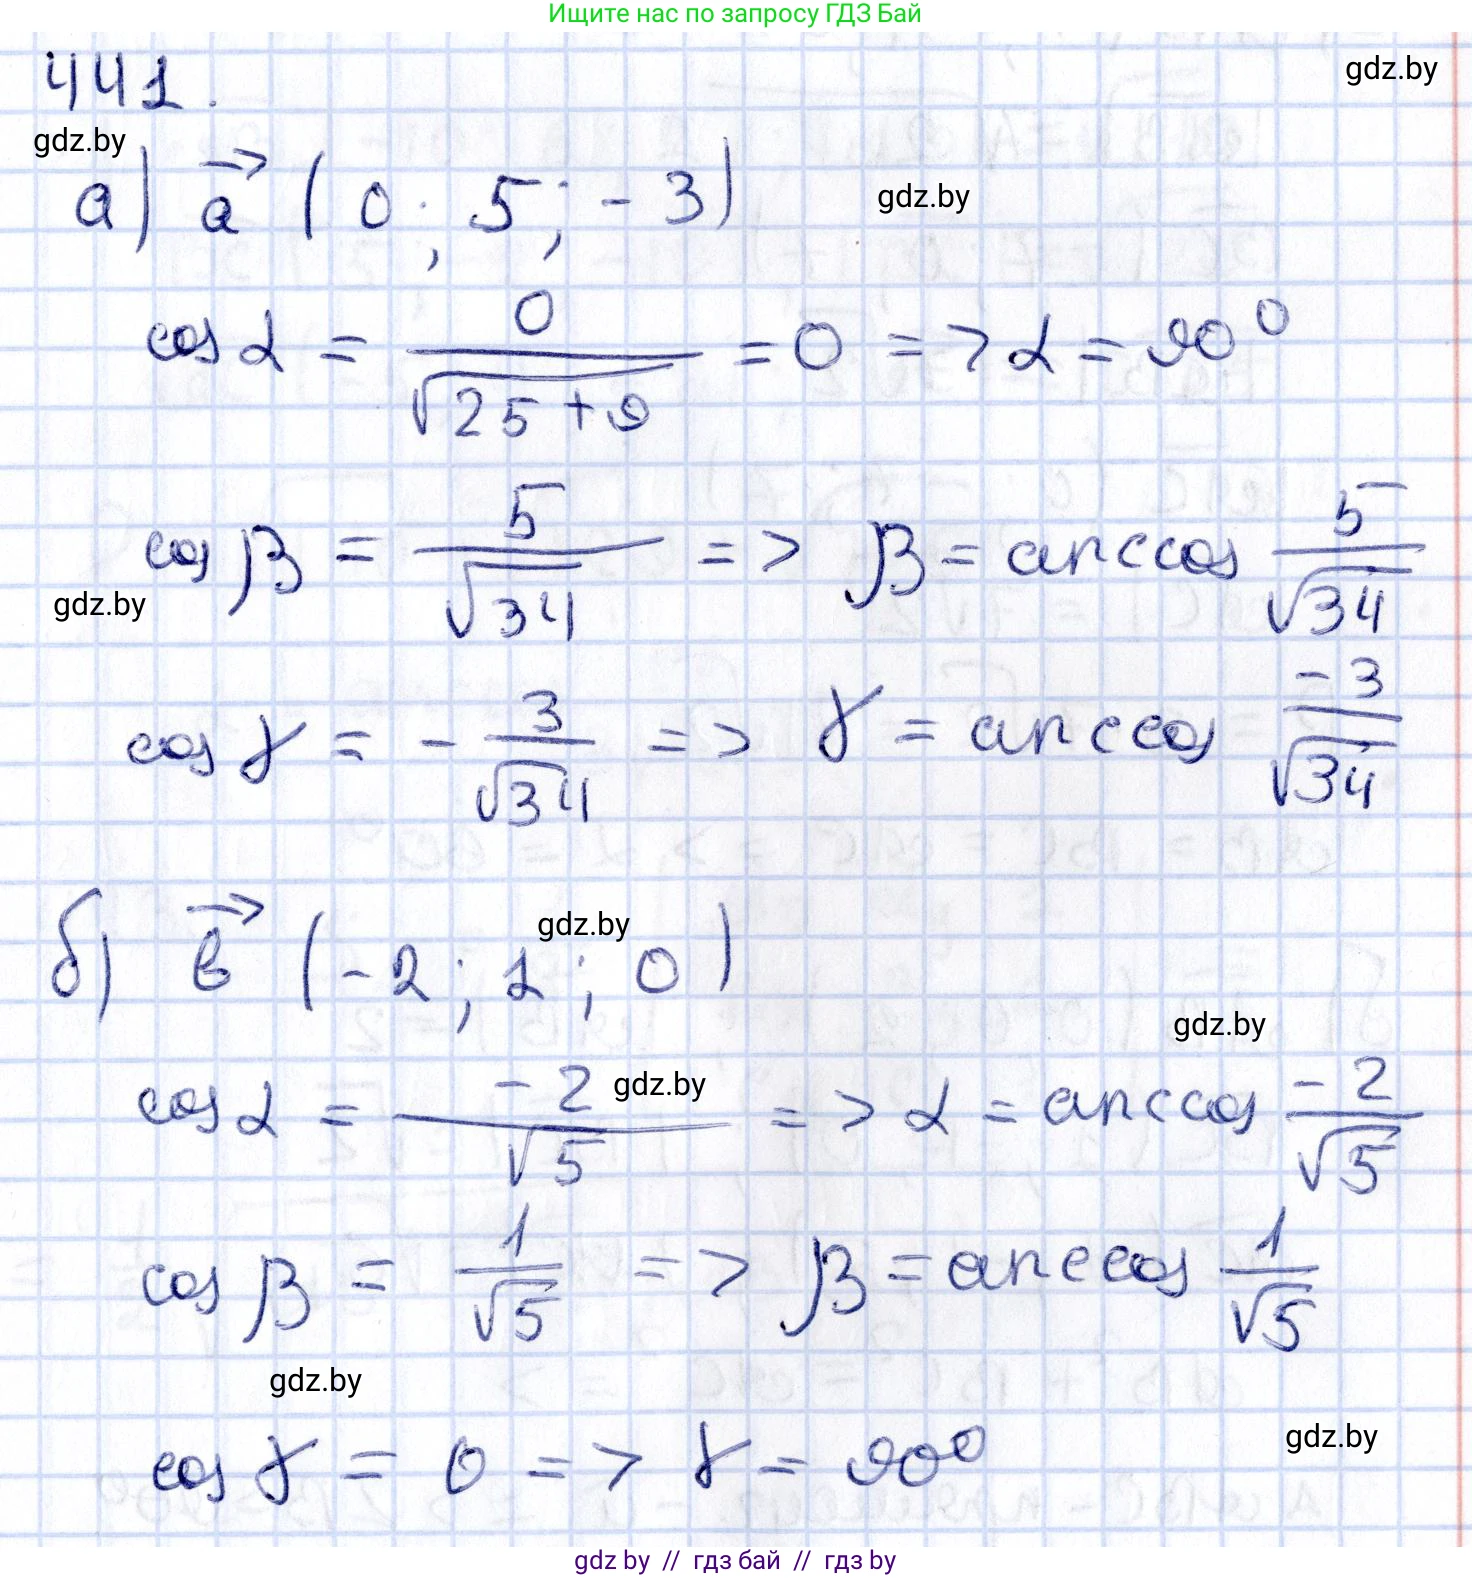 Ищите нас по запросу ГДЗ Бай
441.
gdz.by
gdz.by
а) a⃗ (0; 5; -3)
gdz.by
cos α = 0/√(25+9) = 0 => α = 90⁰
cos β = 5/√34 => β = arccos 5/√34
gdz.by
cos γ = - 3/√34 => γ = arccos -3/√34
б) в⃗ (-2; 1; 0)
gdz.by
gdz.by
cos α = -2/√5 => α = arccos -2/√5
gdz.by
cos β = 1/√5 => β = arccos 1/√5
gdz.by
gdz.by
cos γ = 0 => γ = 90⁰
gdz by // гдз бай // гдз by